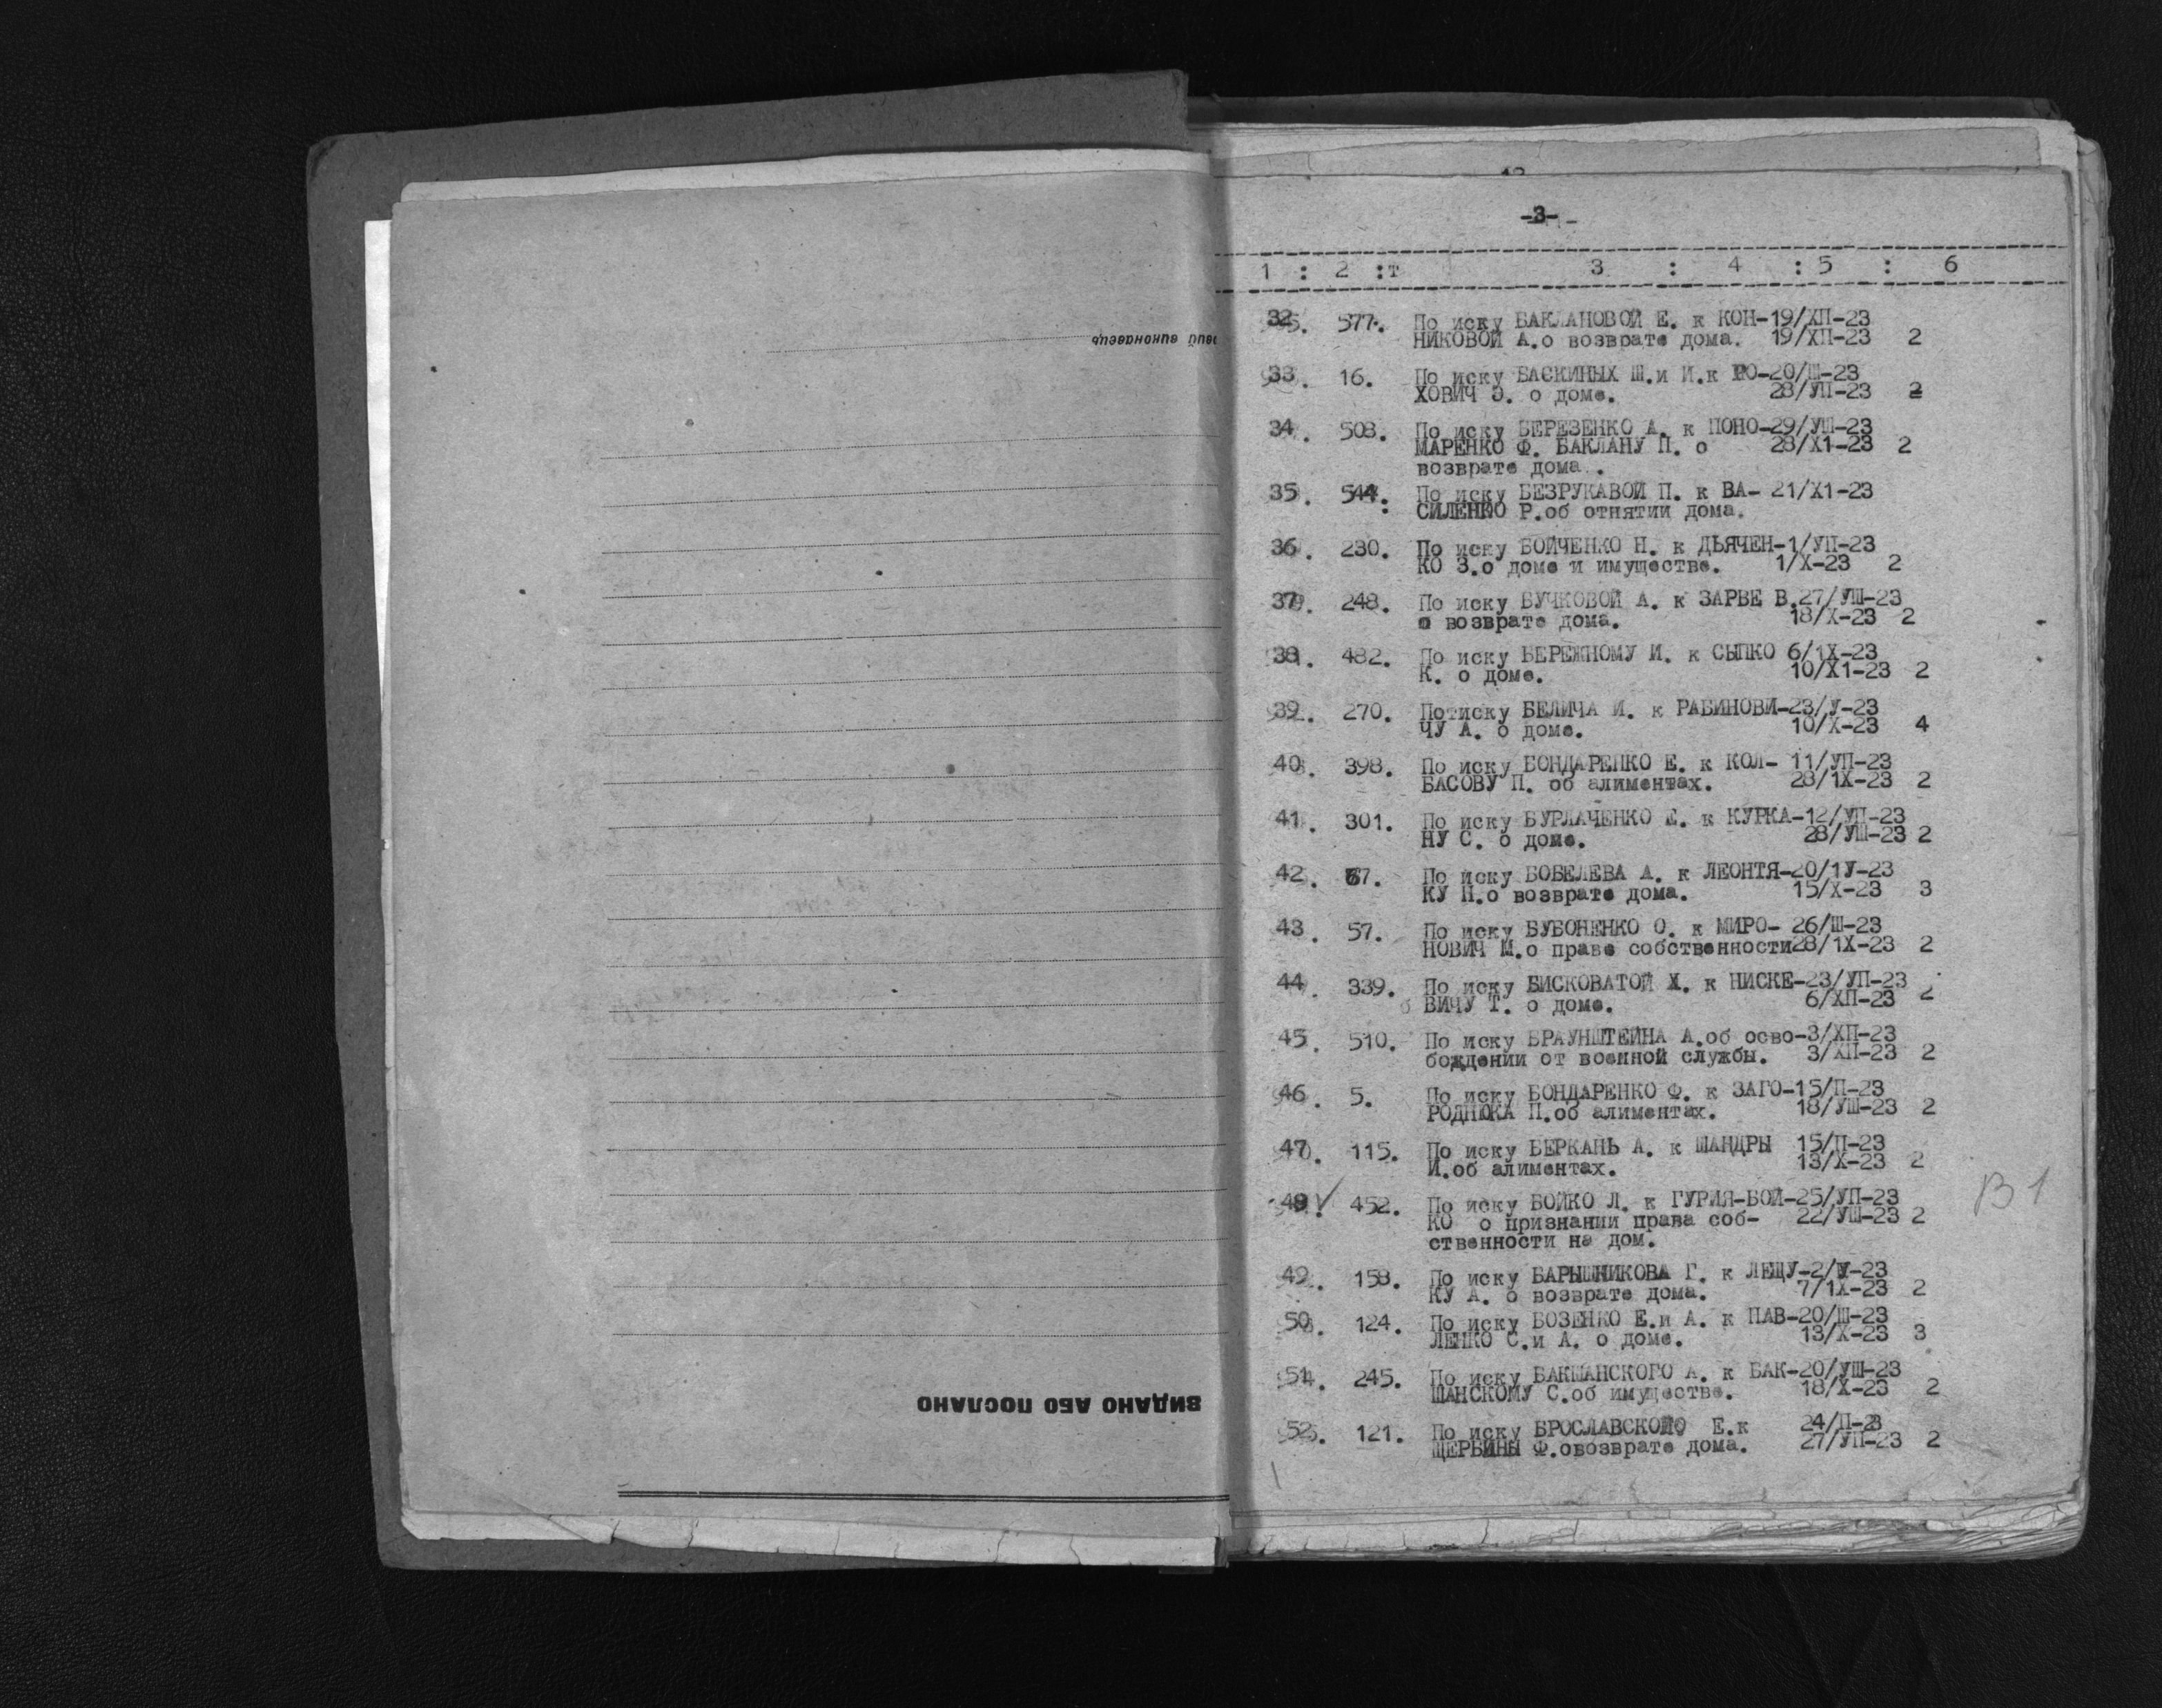 овий виконавець
ВИДАНО АБО ПОСЛАНО
-3-
1 : 2 :т 3 : 4 : 5 : 6
32. 577. По иску БАКЛАНОВОЙ Е. к КОН-19/ХП-23
НИКОВОЙ А.о возврате дома. 19/ХП-23 2
33. 16. По иску БАСКИНЫХ Ш.и И.к РО-20/Ш-23
ХОВИЧ Э. о доме. 28/УП-23 2
34. 503. По иску БЕРЕЗЕНКО А. к ПОНО-29/УШ-23
МАРЕНКО Ф. БАКЛАНУ П. о 28/Х1-23 2
возврате дома.
35. 544. По иску БЕЗРУКАВОЙ П. к ВА- 21/Х1-23
СИЛЕНКО Р.об отнятии дома.
36. 230. По иску БОЙЧЕНКО Н. к ДЬЯЧЕН-1/УП-23
КО З.о доме и имуществе. 1/Х-23 2
37. 248. По иску БУЧКОВОЙ А. к ЗАРВЕ В.27/УШ-23
о возврате дома. 18/Х-23 2
38. 482. По иску БЕРЕЖНОМУ И. к СЫПКО 6/1Х-23
К. о доме. 10/Х1-23 2
39. 270. Потиску БЕЛИЧА И. к РАБИНОВИ-23/У-23
ЧУ А. о доме. 10/Х-23 4
40. 398. По иску БОНДАРЕНКО Е. к КОЛ- 11/УП-23
БАСОВУ П. об алиментах. 28/1Х-23 2
41. 301. По иску БУРЛАЧЕНКО Е. к КУРКА-12/УП-23
НУ С. о доме. 28/УШ-23 2
42. 67. По иску БОБЕЛЕВА А. к ЛЕОНТЯ-20/1У-23
КУ Н.о возврате дома. 15/Х-23 3
43. 57. По иску БУБОНЕНКО О. к МИРО- 26/Ш-23
НОВИЧ М.о праве собственности28/1Х-23 2
44. 339. По иску БИСКОВАТОЙ Х. к НИСКЕ-23/УП-23
ВИЧУ Т. о доме. 6/ХП-23 2
45. 510. По иску БРАУНШТЕЙНА А.об осво-3/ХП-23
бождении от военной службы. 3/ХП-23 2
46. 5. По иску БОНДАРЕНКО Ф. к ЗАГО-15/П-23
РОДНЮКА П.об алиментах. 18/УШ-23 2
47. 115. По иску БЕРКАНЬ А. к ШАНДРЫ 15/П-23
И.об алиментах. 13/Х-23 2
48. 452. По иску БОЙКО Л. к ГУРИЯ-БОЙ-25/УП-23
КО о признании права соб- 22/УШ-23 2
ственности на дом.
В 1
49. 158. По иску БАРЫШНИКОВА Г. к ЛЕЩУ-2/У-23
КУ А. о возврате дома. 7/1Х-23 2
50. 124. По иску БОЗЕНКО Е.и А. к ПАВ-20/Ш-23
ЛЕНКО С.и А. о доме. 13/Х-23 3
51. 245. По иску БАКШАНСКОГО А. к БАК-20/УШ-23
ШАНСКОМУ С.об имуществе. 18/Х-23 2
52. 121. По иску БРОСЛАВСКОЙ Е.к 24/П-23
ЩЕРБИНЫ Ф.овозврате дома. 27/УП-23 2